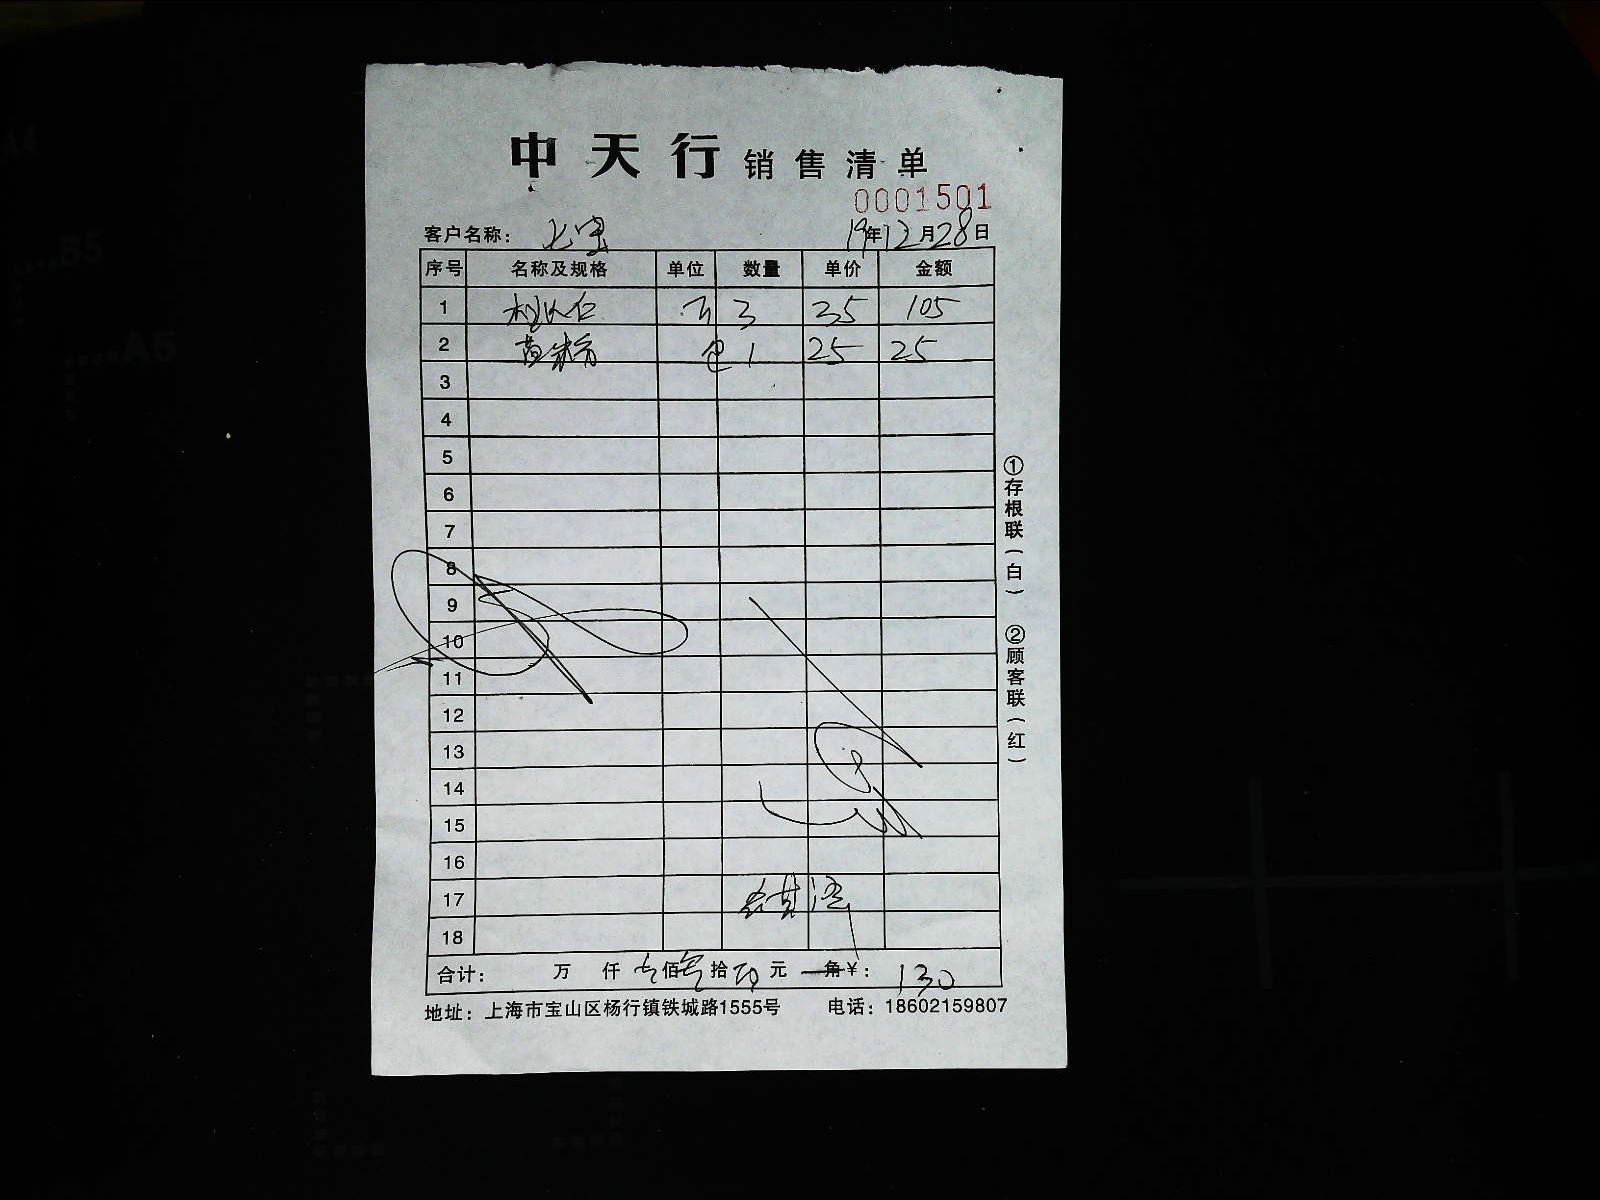 中天行 销售清单
0001501
客户名称： 19年12月28日
序号 名称及规格 单位 数量 单价 金额
1 3 35 105
2 黄粉 包 1 25 25
3
4
5
6
7
8
9
10
11
12
13
14
15
16
17
18
合计： 万 仟 佰 拾 元 角 ¥： 130
地址：上海市宝山区杨行镇铁城路1555号 电话：18602159807
①存根联（白）
②顾客联（红）